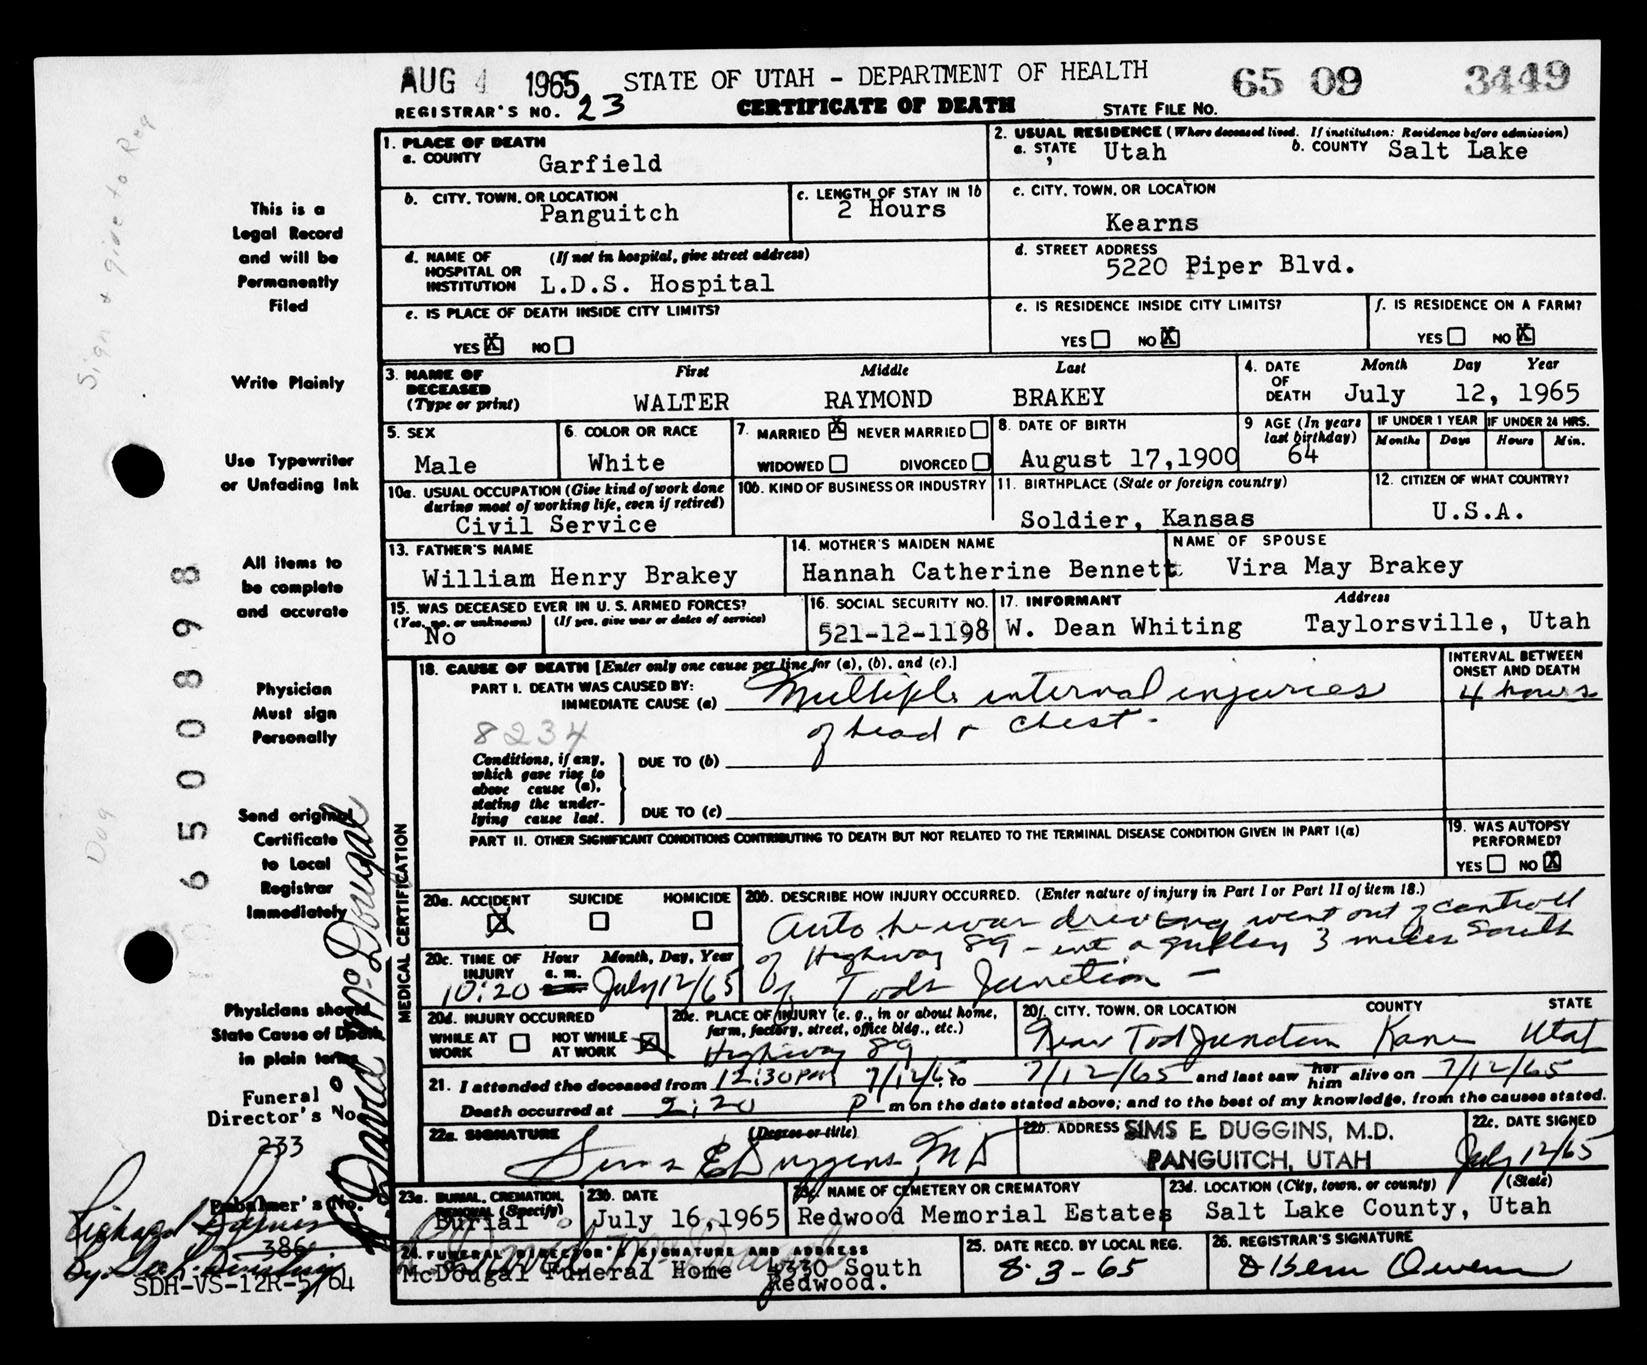 AUG 4 1965 STATE OF UTAH - DEPARTMENT OF HEALTH 65 09 3449
REGISTRAR'S NO. 23 CERTIFICATE OF DEATH STATE FILE NO.
1. PLACE OF DEATH
a. COUNTY Garfield
2. USUAL RESIDENCE (Where deceased lived. If institution: Residence before admission)
a. STATE Utah b. COUNTY Salt Lake
b. CITY, TOWN, OR LOCATION Panguitch
c. LENGTH OF STAY IN 1b 2 Hours
c. CITY, TOWN, OR LOCATION
Kearns
d. NAME OF (If not in hospital, give street address)
HOSPITAL OR
INSTITUTION L.D.S. Hospital
d. STREET ADDRESS
5220 Piper Blvd.
e. IS PLACE OF DEATH INSIDE CITY LIMITS?
YES X NO
e. IS RESIDENCE INSIDE CITY LIMITS?
YES NO X
f. IS RESIDENCE ON A FARM?
YES NO X
3. NAME OF First Middle Last
DECEASED
(Type or print) WALTER RAYMOND BRAKEY
4. DATE Month Day Year
OF
DEATH July 12, 1965
5. SEX
Male
6. COLOR OR RACE
White
7. MARRIED X NEVER MARRIED
WIDOWED DIVORCED
8. DATE OF BIRTH
August 17,1900
9 AGE (In years
last birthday)
64
IF UNDER 1 YEAR IF UNDER 24 HRS.
Months Days Hours Min.
10a. USUAL OCCUPATION (Give kind of work done
during most of working life, even if retired)
Civil Service
10b. KIND OF BUSINESS OR INDUSTRY
11. BIRTHPLACE (State or foreign country)
Soldier, Kansas
12. CITIZEN OF WHAT COUNTRY?
U.S.A.
13. FATHER'S NAME
William Henry Brakey
14. MOTHER'S MAIDEN NAME
Hannah Catherine Bennett
NAME OF SPOUSE
Vira May Brakey
15. WAS DECEASED EVER IN U. S. ARMED FORCES?
(Yes, no, or unknown) (If yes, give war or dates of service)
No
16. SOCIAL SECURITY NO.
521-12-1198
17. INFORMANT Address
W. Dean Whiting Taylorsville, Utah
18. CAUSE OF DEATH [Enter only one cause per line for (a), (b), and (c).]
INTERVAL BETWEEN
ONSET AND DEATH
PART I. DEATH WAS CAUSED BY:
IMMEDIATE CAUSE (a) Multiple internal injuries 4 hours
of head & chest.
8234
Conditions, if any,
which gave rise to
above cause (a),
stating the under-
lying cause last.
DUE TO (b)
DUE TO (c)
PART II. OTHER SIGNIFICANT CONDITIONS CONTRIBUTING TO DEATH BUT NOT RELATED TO THE TERMINAL DISEASE CONDITION GIVEN IN PART I(a)
19. WAS AUTOPSY
PERFORMED?
YES NO X
20a. ACCIDENT SUICIDE HOMICIDE
X
20b. DESCRIBE HOW INJURY OCCURRED. (Enter nature of injury in Part I or Part II of item 18.)
Auto he was driving went out of controll
of Highway 89 - int a gulley 3 miles South
of Tods Junction -
20c. TIME OF Hour Month, Day, Year
INJURY a. m.
10:20 July 12/65
20d. INJURY OCCURRED
WHILE AT NOT WHILE
WORK AT WORK X
20e. PLACE OF INJURY (e. g., in or about home,
farm, factory, street, office bldg., etc.)
Highway 89
20f. CITY, TOWN, OR LOCATION COUNTY STATE
Near Tod Junction Kane Utah
21. I attended the deceased from 12:30 PM 7/12/65, to 7/12/65 and last saw her him alive on 7/12/65
Death occurred at 2:20 P m on the date stated above; and to the best of my knowledge, from the causes stated.
22a. SIGNATURE (Degree or title)
Sims E Duggins MD
22b. ADDRESS SIMS E. DUGGINS, M.D.
PANGUITCH, UTAH
22c. DATE SIGNED
July 12/65
23a. BURIAL, CREMATION,
REMOVAL (Specify)
Burial
23b. DATE
July 16,1965
23c. NAME OF CEMETERY OR CREMATORY
Redwood Memorial Estates
23d. LOCATION (City, town, or county) (State)
Salt Lake County, Utah
24. FUNERAL DIRECTOR'S SIGNATURE AND ADDRESS
McDougal Funeral Home 4330 South
Redwood.
25. DATE RECD. BY LOCAL REG.
8-3-65
26. REGISTRAR'S SIGNATURE
Owens
MEDICAL CERTIFICATION
This is a
Legal Record
and will be
Permanently
Filed
Write Plainly
Use Typewriter
or Unfading Ink
All items to
be complete
and accurate
Physician
Must sign
Personally
Send original
Certificate
to Local
Registrar
Immediately
Physicians should
State Cause of Death
in plain terms
Funeral
Director's No.
233
Embalmer's No.
386
SDH-VS-12R-5/64
David McDougal
Sign & give to Reg
Dug
6500898